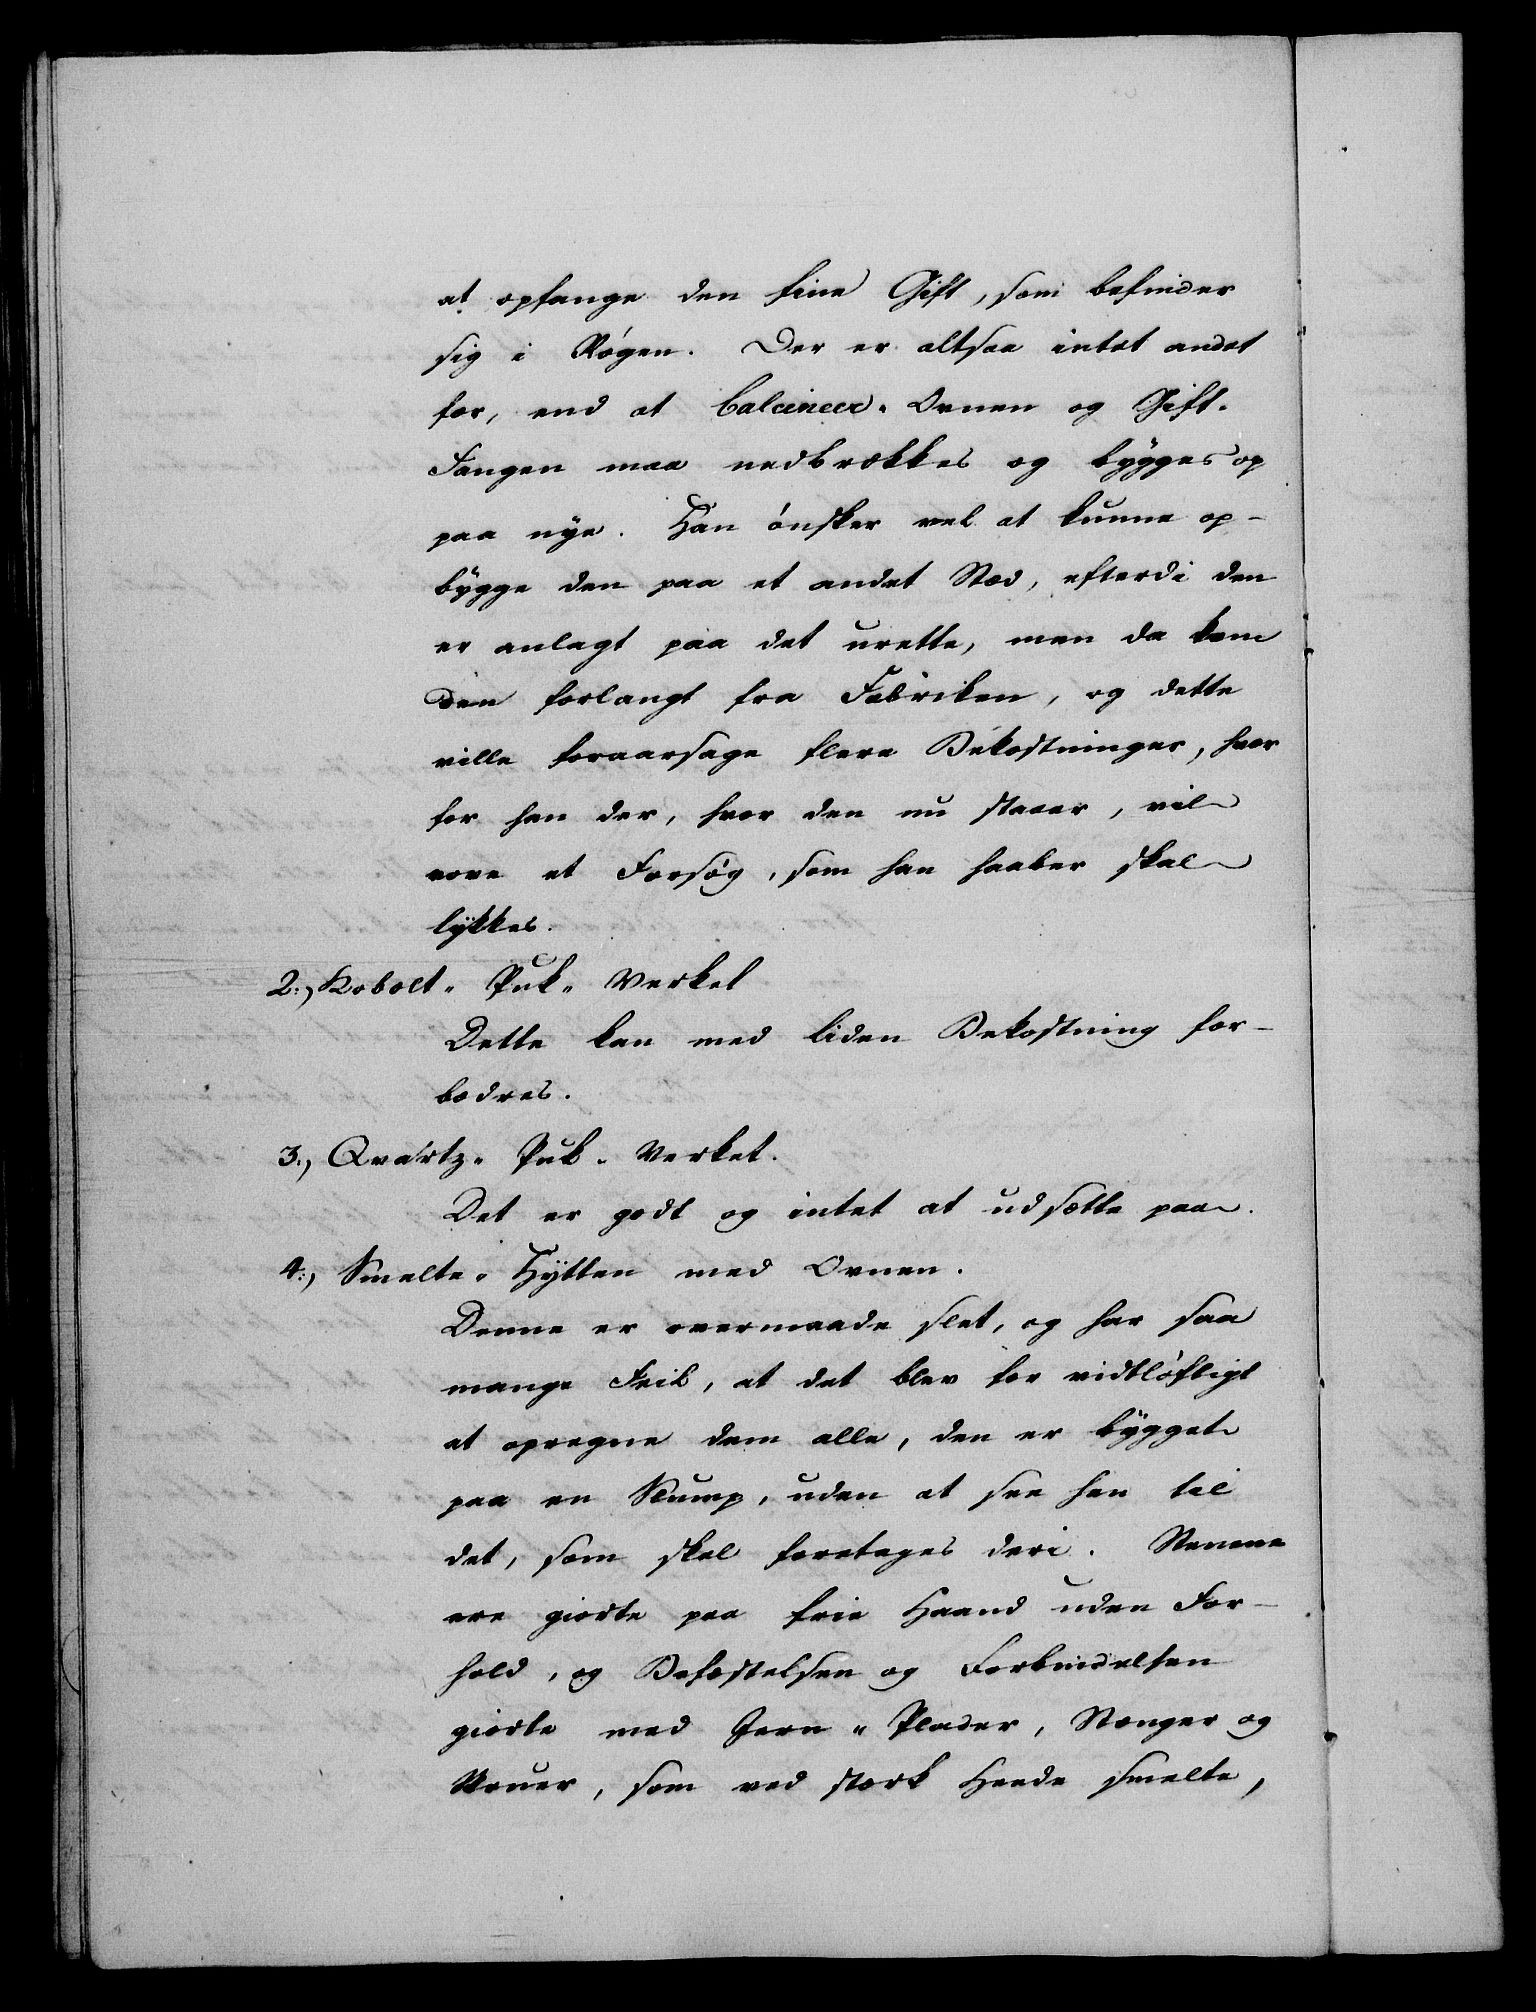 at opfange den fine Gift, som befinder
sig i Røgen. Der er altsaa intet andet
for, end at Calcineer-Ovnen og Gift-
Fangen maa nedbrækkes og bygges op
paa nye. Han ønsker vel at kunne op-
bygge den paa et andet Sted, efterdi den
er anlagt paa det urette, men da kom
den forlangt fra Fabriken, og dette
ville foraarsage flere Bekostninger, hvor
for han der, hvor den nu staaer, vil
vove et Forsøg, som han haaber skal
lykkes.
2:, Kobolt-Puk-Verket
Dette kan med liden Bekostning for-
bedres.
3:, Qvartz-Puk-Verket.
Det er godt og intet at udsætte paa.
4:, Smelte-Hytten med Ovnen.
Denne er overmaade slet, og har saa
mange Feil, at det blev for vidtløftigt
at opregne dem alle, den er bygget
paa en Slump, uden at see hen til
det, som skal foretages deri. Stenene
ere giorte paa frie Haand uden For-
hold, og Befæstelsen og Forbindelsen
giorte med Jern-Plader, Stænger og
Skruer, som ved stærk Heede smelte,